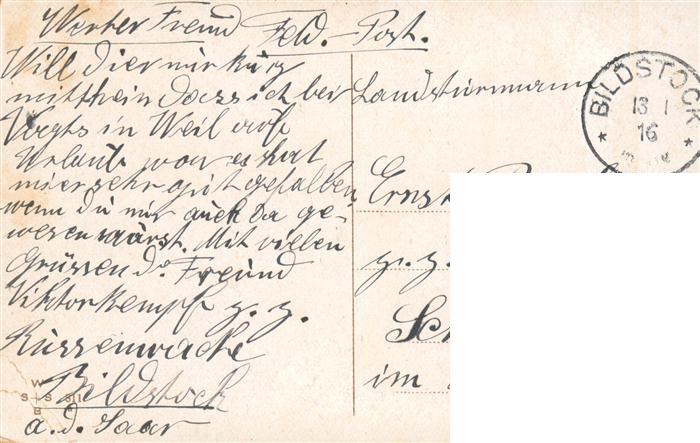 Werter Freund Feld.-Post.
Will dier nur kurz
mittheiln dass ich bei
Vogts in Weil auf
Urlaub war es hat
mier sehr gut gefallen
wenn du nur auch da ge-
wesen wärst. Mit vielen
Grüssen d. Freund
Viktor Kempf z. Z.
Russenwache
Bildstock
a. d. Saar
Landsturmmann
Ernst
z. Z.
Sch
im
BILDSTOCK
13 1
16
W
S S 311
B